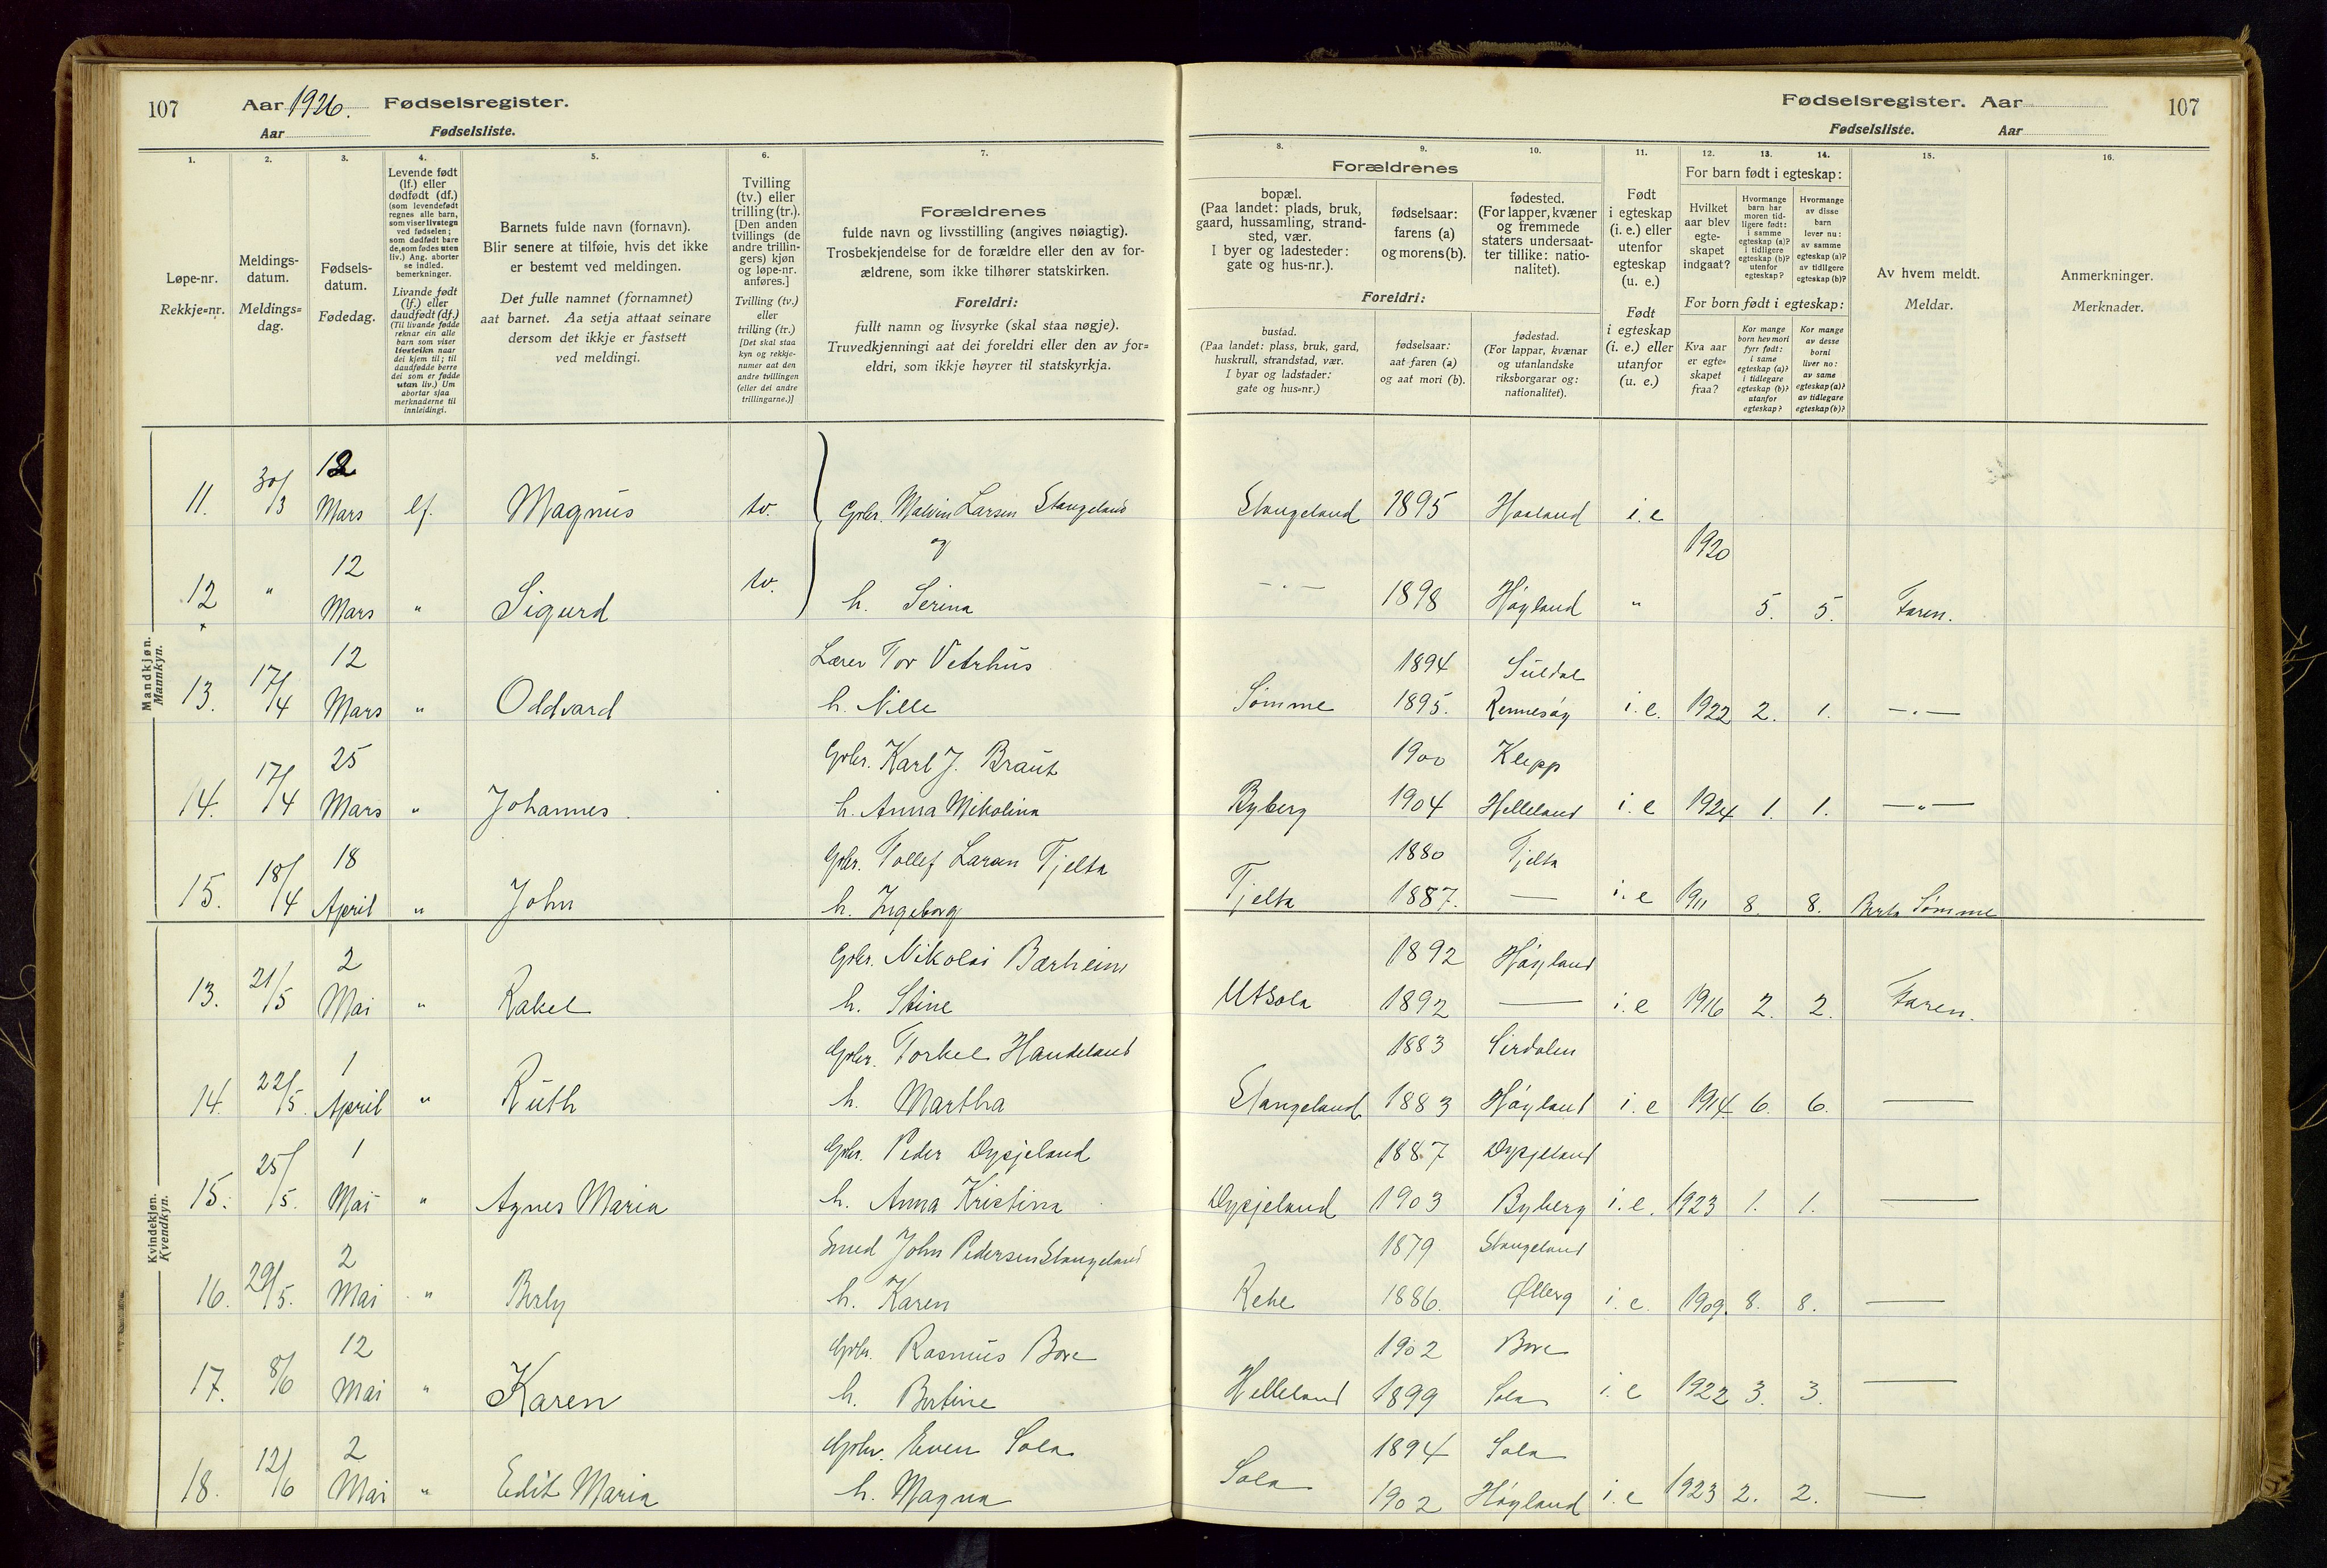 107 Aar 1926. Fødselsregister.
Aar Fødselsliste.
Fødselsregister. Aar 107
Fødselsliste. Aar
1. 2. 3. 4. 5. 6. 7.
8. 9. 10. 11. 12. 13. 14. 15. 16.
Løpe-nr.
Rekkje=nr.
Meldings-
datum.
Meldings=
dag.
Fødsels-
datum.
Fødedag.
Levende født
(lf.) eller
dødfødt (df.)
(som levendefødt
regnes alle barn,
som viser livstegn
ved fødselen;
som dødfødt bare
de, som fødes uten
liv.) Ang. aborter
se indled.
bemerkninger.
Livande født
(lf.) eller
daudfødt (df.)
(Til livande fødde
reknar ein alle
barn som viser
livsteikn naar
dei kjem til; til
daudfødde berre
dei som er fødde
utan liv.) Um
abortar sjaa
merknaderne til
innleidingi.
Barnets fulde navn (fornavn).
Blir senere at tilføie, hvis det ikke
er bestemt ved meldingen.
Det fulle namnet (fornamnet)
aat barnet. Aa setja attaat seinare
dersom det ikkje er fastsett
ved meldingi.
Tvilling
(tv.) eller
trilling (tr.).
[Den anden
tvillings (de
andre trillin-
gers) kjøn
og løpe-nr.
anføres.]
Tvilling (tv.)
eller
trilling (tr.)
[Det skal staa
kyn og rekkje-
numer aat den
andre tvillingen
(eller dei andre
trillingarne.)]
Forældrenes
fulde navn og livsstilling (angives nøiagtig).
Trosbekjendelse for de forældre eller den av for-
ældrene, som ikke tilhører statskirken.
Foreldri:
fullt namn og livsyrke (skal staa nøgje).
Truvedkjenningi aat dei foreldri eller den av for=
eldri, som ikkje høyrer til statskyrkja.
Forældrenes
bopæl.
(Paa landet: plads, bruk,
gaard, hussamling, strand-
sted, vær.
I byer og ladesteder:
gate og hus-nr.).
fødselsaar:
farens (a)
og morens (b).
fødested.
(For lapper, kvæner
og fremmede
staters undersaat-
ter tillike: natio-
nalitet).
Foreldri:
bustad.
(Paa landet: plass, bruk, gard,
huskrull, strandstad, vær.
I byar og ladstader:
gate og hus=nr.)
fødselsaar:
aat faren (a)
og aat mori (b).
fødestad.
(For lappar, kvænar
og utanlandske
riksborgarar og:
nationalitet).
Født
i egteskap
(i. e.) eller
utenfor
egteskap
(u. e.)
Født
i egteskap
(i. e.) eller
utanfor
(u. e.)
For barn født i egteskap:
Hvilket
aar blev
egte-
skapet
indgaat?
Hvormange
barn har
moren tid-
ligere født:
i samme
egteskap (a)?
i tidligere
egteskap (b)?
utenfor
egteskap?
Hvormange
av disse
barn
lever nu:
av samme
egteskap (a)?
av tidligere
egteskap (b)?
For born født i egteskap:
Kva aar
er egte=
skapet
fraa?
Kor mange
born hev mori
fyrr født:
i same
egteskap (a)?
i tidlegare
egteskap (b)?
utanfor
egteskap?
Kor mange
av desse
borni
liver no:
av same
egteskap (a)?
av tidlegare
egteskap (b)?
Av hvem meldt.
Meldar.
Anmerkninger.
Merknader.
Mandkjøn.
Mannkyn.
11. 30/3 12 Mars lf. Magnus tv. Gbr. Malvin Larsen Stangeland Stangeland 1895 Haaland i. e
og 1920
12 " 12 Mars " Sigurd tv. h. Serina – . – 1898 Høyland " 5. 5. Faren.
Lærer Tor Vetrhus 1894 Suldal
13. 17/4 12 Mars " Oddvard h. Nille Sømme 1895. Rennesøy i. e. 1922 2. 1. – . –
Gbr. Karl J. Braut 1900 Klepp
14. 17/4 25 Mars " Johannes. h. Anna Nikolina Byberg 1904 Helleland i. e 1924 1. 1. – " –
Gbr. Tollef Larsen Tjelta 1880 Tjelta
15. 18/4 18 April " John h. Ingeborg Tjelta 1887. — i. e 1911 8. 8. Berta Sømme
Kvindekjøn.
Kvendkyn.
Gbr. Nikolai Bærheim 1892 Høyland
13. 21/5 2 Mai " Rakel h. Stine Utsola 1892 — i. e 1916 2. 2. Faren.
Gbr. Torkel Handeland 1883 Sirdalen
14. 22/5. 1 April " Ruth h. Martha Stangeland 1883 Høyland i. e 1914 6. 6. —
Gbr. Peder Dysjeland 1887 Dysjeland
15. 25/5. 1 Mai " Agnes Maria h. Anna Kristina Dysjeland 1903 Byberg i. e. 1923 1. 1. —
Smed John Pedersen Stangeland 1879 Stangeland
16. 29/5. 2 Mai " Berly h. Karen Rehe 1886. Ølberg i. e. 1909. 8. 8. —
Gbr. Rasmus Bore 1902 Bore
17. 8/6 12 Mai " Karen h. Bertine Helleland 1899 Sola i. e 1922 3. 3. —
Gbr. Even Sola 1894 Sola
18. 12/6 2 Mai " Edit Maria h. Magna Sola 1902 Høyland i. e 1923 2. 2. —